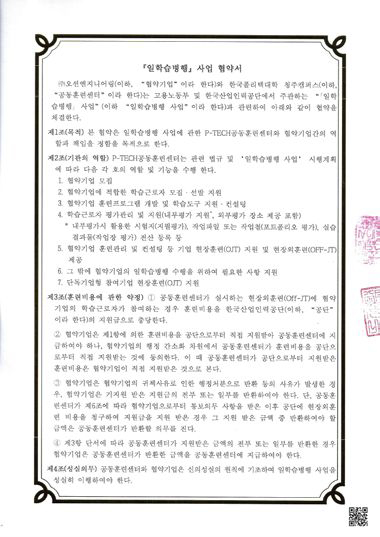 『일학습병행』 사업 협약서
㈜오션엔지니어링(이하, "협약기업"이라 한다)와 한국폴리텍대학 청주캠퍼스(이하,
"공동훈련센터"이라 한다)는 고용노동부 및 한국산업인력공단에서 주관하는 "「일학
습병행」 사업"(이하 "일학습병행 사업"이라 한다)과 관련하여 아래와 같이 협약을
체결한다.
제1조(목적) 본 협약은 일학습병행 사업에 관한 P-TECH공동훈련센터와 협약기업간의 역
할과 책임을 정함을 목적으로 한다.
제2조(기관의 역할) P-TECH공동훈련센터는 관련 법규 및 '일학습병행 사업' 시행계획
에 따라 다음 각 호의 역할 및 기능을 수행 한다.
1. 협약기업 모집
2. 협약기업에 적합한 학습근로자 모집·선발 지원
3. 협약기업 훈련프로그램 개발 및 학습도구 지원·컨설팅
4. 학습근로자 평가관리 및 지원(내부평가 지원*, 외부평가 장소 제공 포함)
* 내부평가시 활용한 시험지(지필평가), 작업파일 또는 작업물(포트폴리오 평가), 실습
결과물(작업장 평가) 전산 등록 등
5. 협약기업 훈련관리 및 컨설팅 등 기업 현장훈련(OJT) 지원 및 현장외훈련(OFF-JT)
제공
6. 그 밖에 협약기업의 일학습병행 수행을 위하여 필요한 사항 지원
7. 단독기업형 참여기업 현장훈련(OJT) 지원
제3조(훈련비용에 관한 약정) ① 공동훈련센터가 실시하는 현장외훈련(Off-JT)에 협약
기업의 학습근로자가 참여하는 경우 훈련비용을 한국산업인력공단(이하, "공단"
이라 한다)의 지원금으로 충당한다.
② 협약기업은 제1항에 의한 훈련비용을 공단으로부터 직접 지원받아 공동훈련센터에 지
급하여야 하나, 협약기업의 행정 간소화 차원에서 공동훈련센터가 훈련비용을 공단으
로부터 직접 지원받는 것에 동의한다. 이 때 공동훈련센터가 공단으로부터 지원받은
훈련비용은 협약기업이 직접 지원받은 것으로 본다.
③ 협약기업은 협약기업의 귀책사유로 인한 행정처분으로 반환 등의 사유가 발생한 경
우, 협약기업은 기지원 받은 지원금의 전부 또는 일부를 반환하여야 한다. 단, 공동훈
련센터가 제6조에 따라 협약기업으로부터 통보의무 사항을 받은 이후 공단에 현장외훈
련 비용을 청구하여 지원금을 지원 받은 경우 그 지원 받은 금액 중 반환하여야 할
금액은 공동훈련센터가 반환할 의무를 진다.
④ 제3항 단서에 따라 공동훈련센터가 지원받은 금액의 전부 또는 일부를 반환한 경우
협약기업은 공동훈련센터가 반환한 금액을 공동훈련센터에 지급하여야 한다.
제4조(성실의무) 공동훈련센터와 협약기업은 신의성실의 원칙에 기초하여 일학습병행 사업을
성실히 이행하여야 한다.